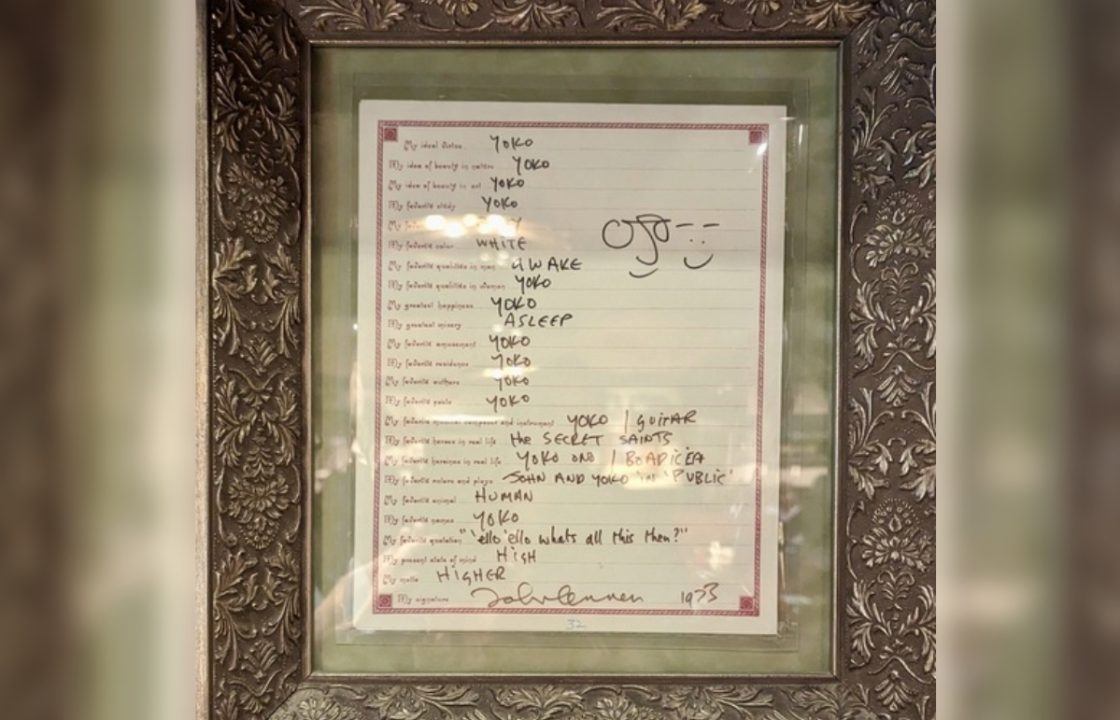 My ideal virtue YOKO
My idea of beauty in nature YOKO
My idea of beauty in art YOKO
My favorite study YOKO
My
My favorite color WHITE
My favorite qualities in man AWAKE
My favorite qualities in woman YOKO
My greatest happiness YOKO
My greatest misery ASLEEP
My favorite amusement YOKO
My favorite residence YOKO
My favorite authors YOKO
My favorite poets YOKO
My favorite composer and instrument YOKO / GUITAR
My favorite heroes in real life the SECRET SAINTS
My favorite heroines in real life YOKO ONO / BOADICEA
My favorite actors and plays JOHN AND YOKO in 'PUBLIC'
My favorite animal HUMAN
My favorite names YOKO
My favorite quotation "'ello 'ello whats all this then?"
My present state of mind HIGH
My motto HIGHER
My signature John Lennon 1973
32